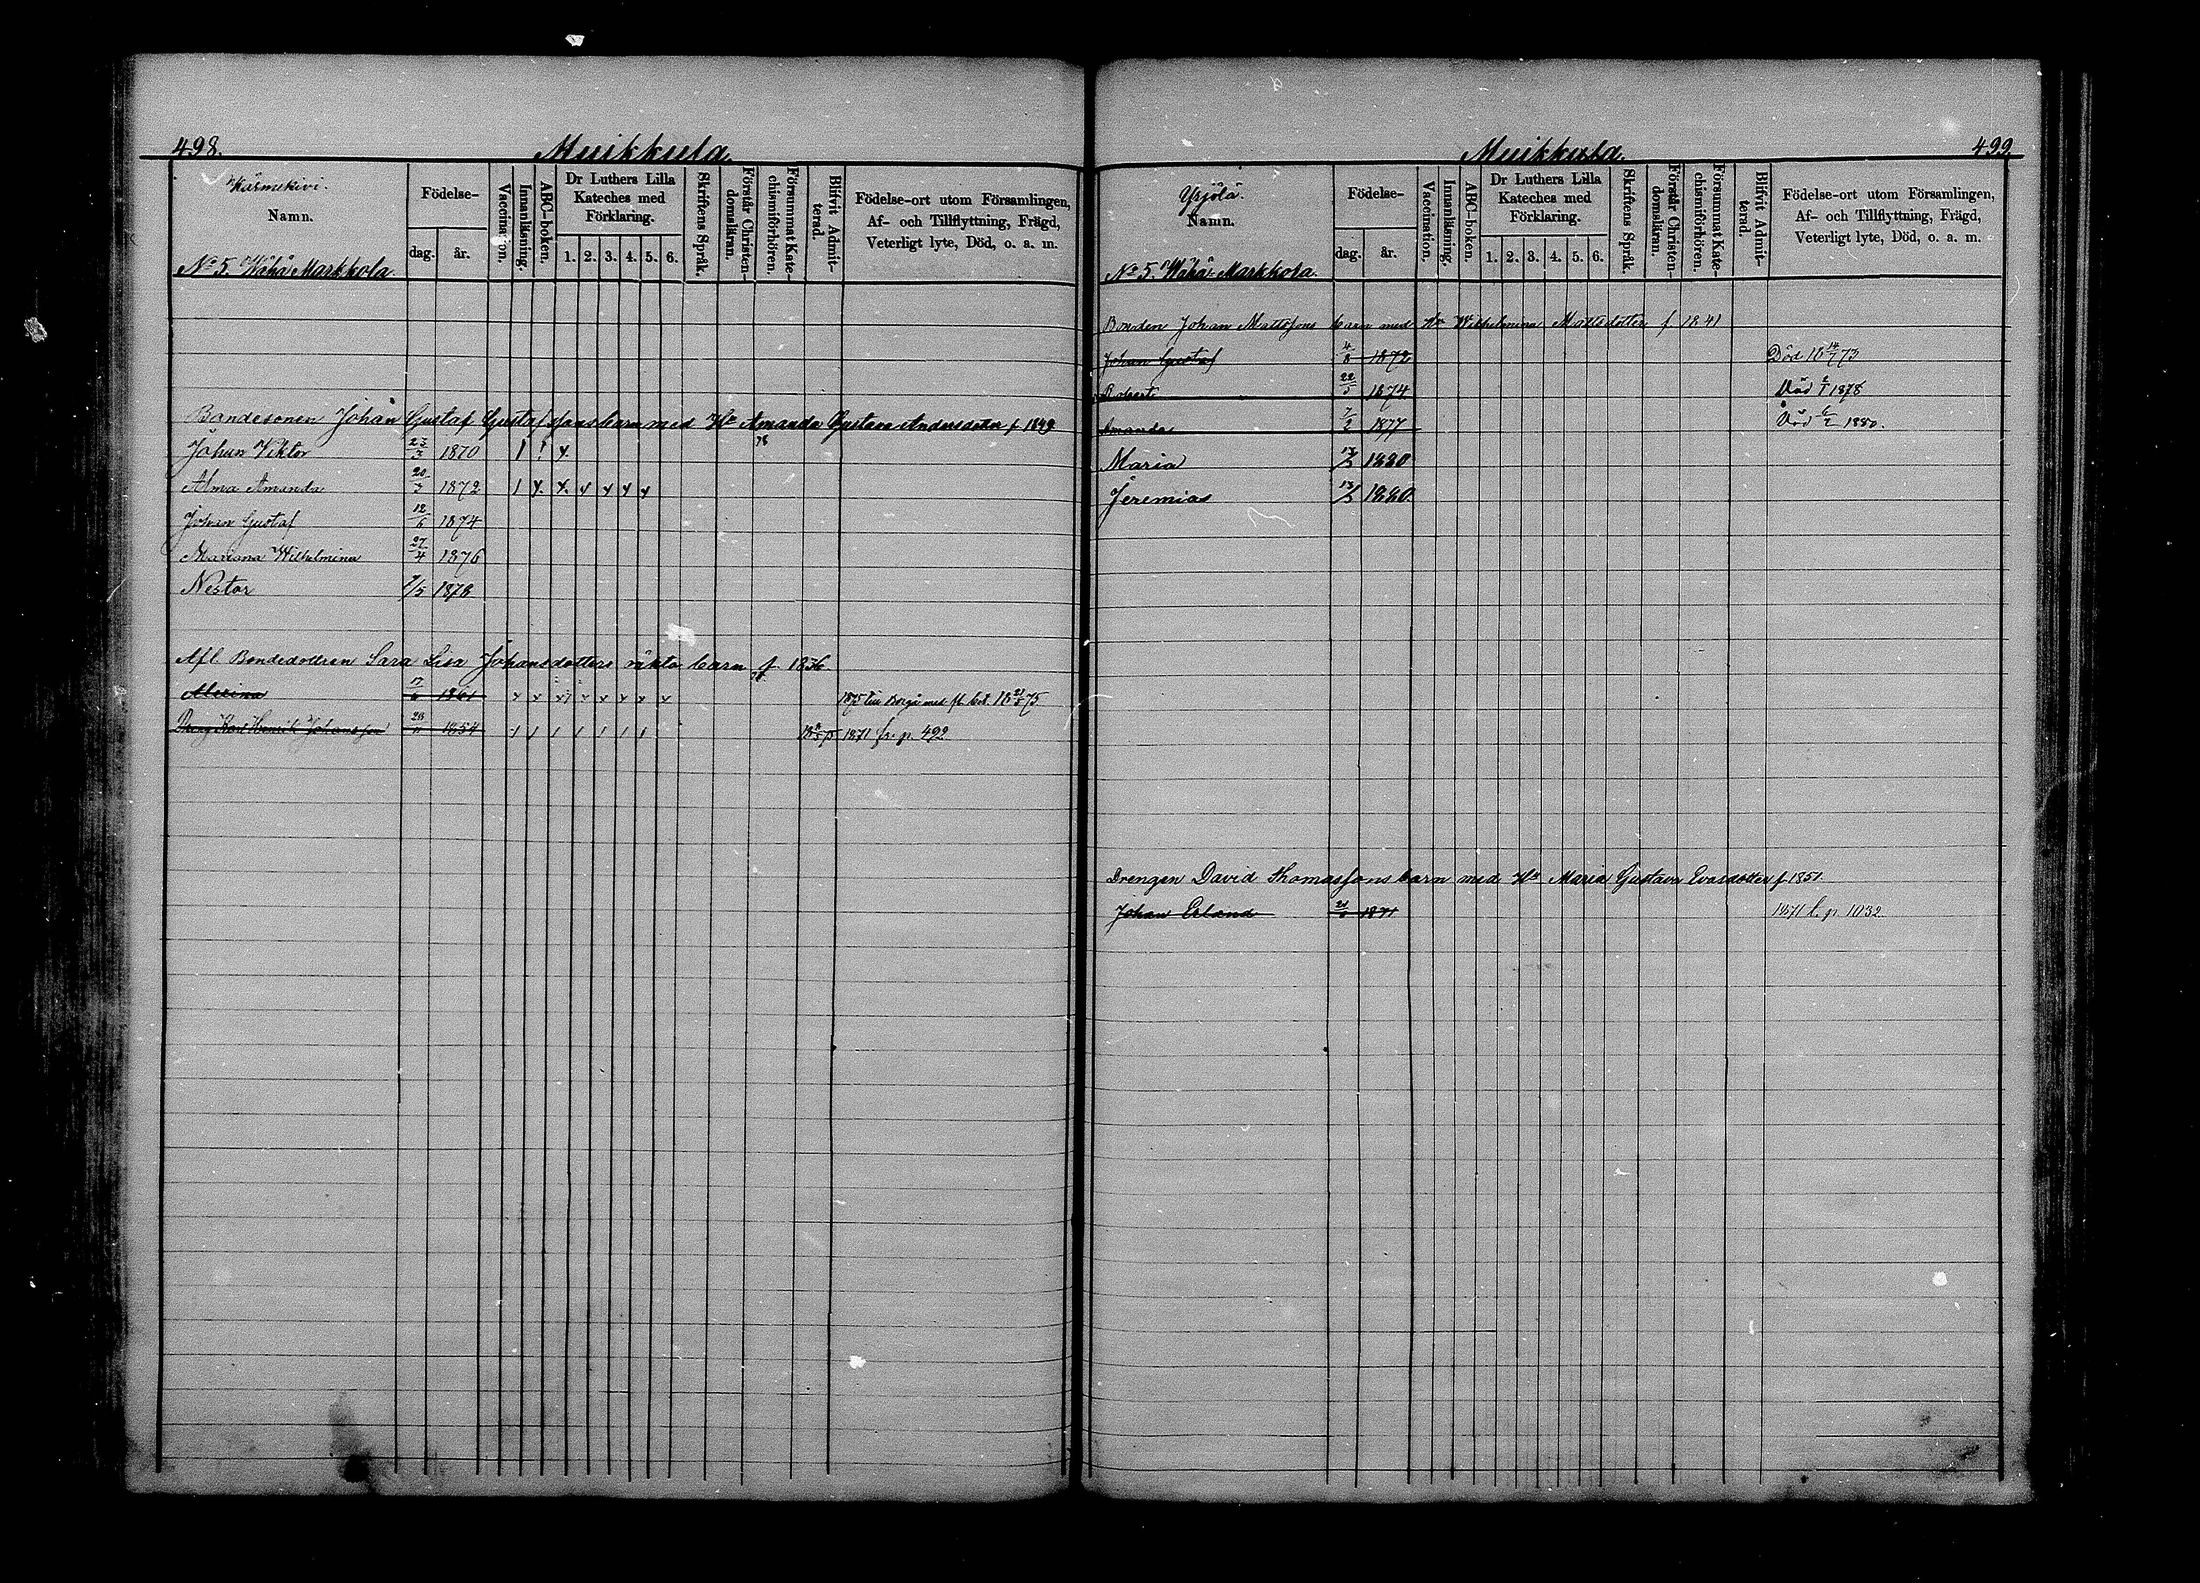 498. Muikkula.
Kärmekivi.
Namn.
No 5. Wähä Markkola.
Födelse-
dag. år.
Vaccination.
Innanläsning.
ABC-boken.
Dr Luthers Lilla
Kateches med
Förklaring.
1. 2. 3. 4. 5. 6.
Skriftens Språk.
Förstår Christen-
domsläran.
Försummat Kate-
chismiförhören.
Blifvit Admit-
terad.
Födelse-ort utom Församlingen,
Af- och Tillflyttning, Frägd,
Veterligt lyte, Död, o. a. m.
Bondesonen Johan Gustaf Gustafssons barn med Hu Amanda Gustava Andersdotter f 1849
Johan Viktor 23/3 1870
Alma Amanda 20/3 1872
Johan Gustaf 12/6 1874
Mariana Wilhelmina 27/4 1876
Nestor 1/5 1878
Afl. Bondedottren Sara Lisa Johansdotters oäkta barn f 1836
17/6 1861 1875 till Borgå med fl. bet. 18 21/5 75
Dreng Karl Henrik Johansson 28/11 1854 1871 fr. p. 492
Muikkula. 499
Yrjölä.
Namn.
No 5. Wähä Markkola.
Födelse-
dag. år.
Vaccination.
Innanläsning.
ABC-boken.
Dr Luthers Lilla
Kateches med
Förklaring.
1. 2. 3. 4. 5. 6.
Skriftens Språk.
Förstår Christen-
domsläran.
Försummat Kate-
chismiförhören.
Blifvit Admit-
terad.
Födelse-ort utom Församlingen,
Af- och Tillflyttning, Frägd,
Veterligt lyte, Död, o. a. m.
Bonden Johan Mattssons barn med Hu Wilhelmina Mattsdotter f 1841
Johan Gustaf 4/8 1872 Död 18 14/7 73
Robert 22/5 1874 Död 2/1 1878
Amanda 7/2 1877 Död 6/2 1880.
Maria 1880
Jeremias 1880
Drengen David Thomassons barn med Hu Maria Gustava Evasdotter f 1851
Johan Erland 1871 1871 t. p. 1032